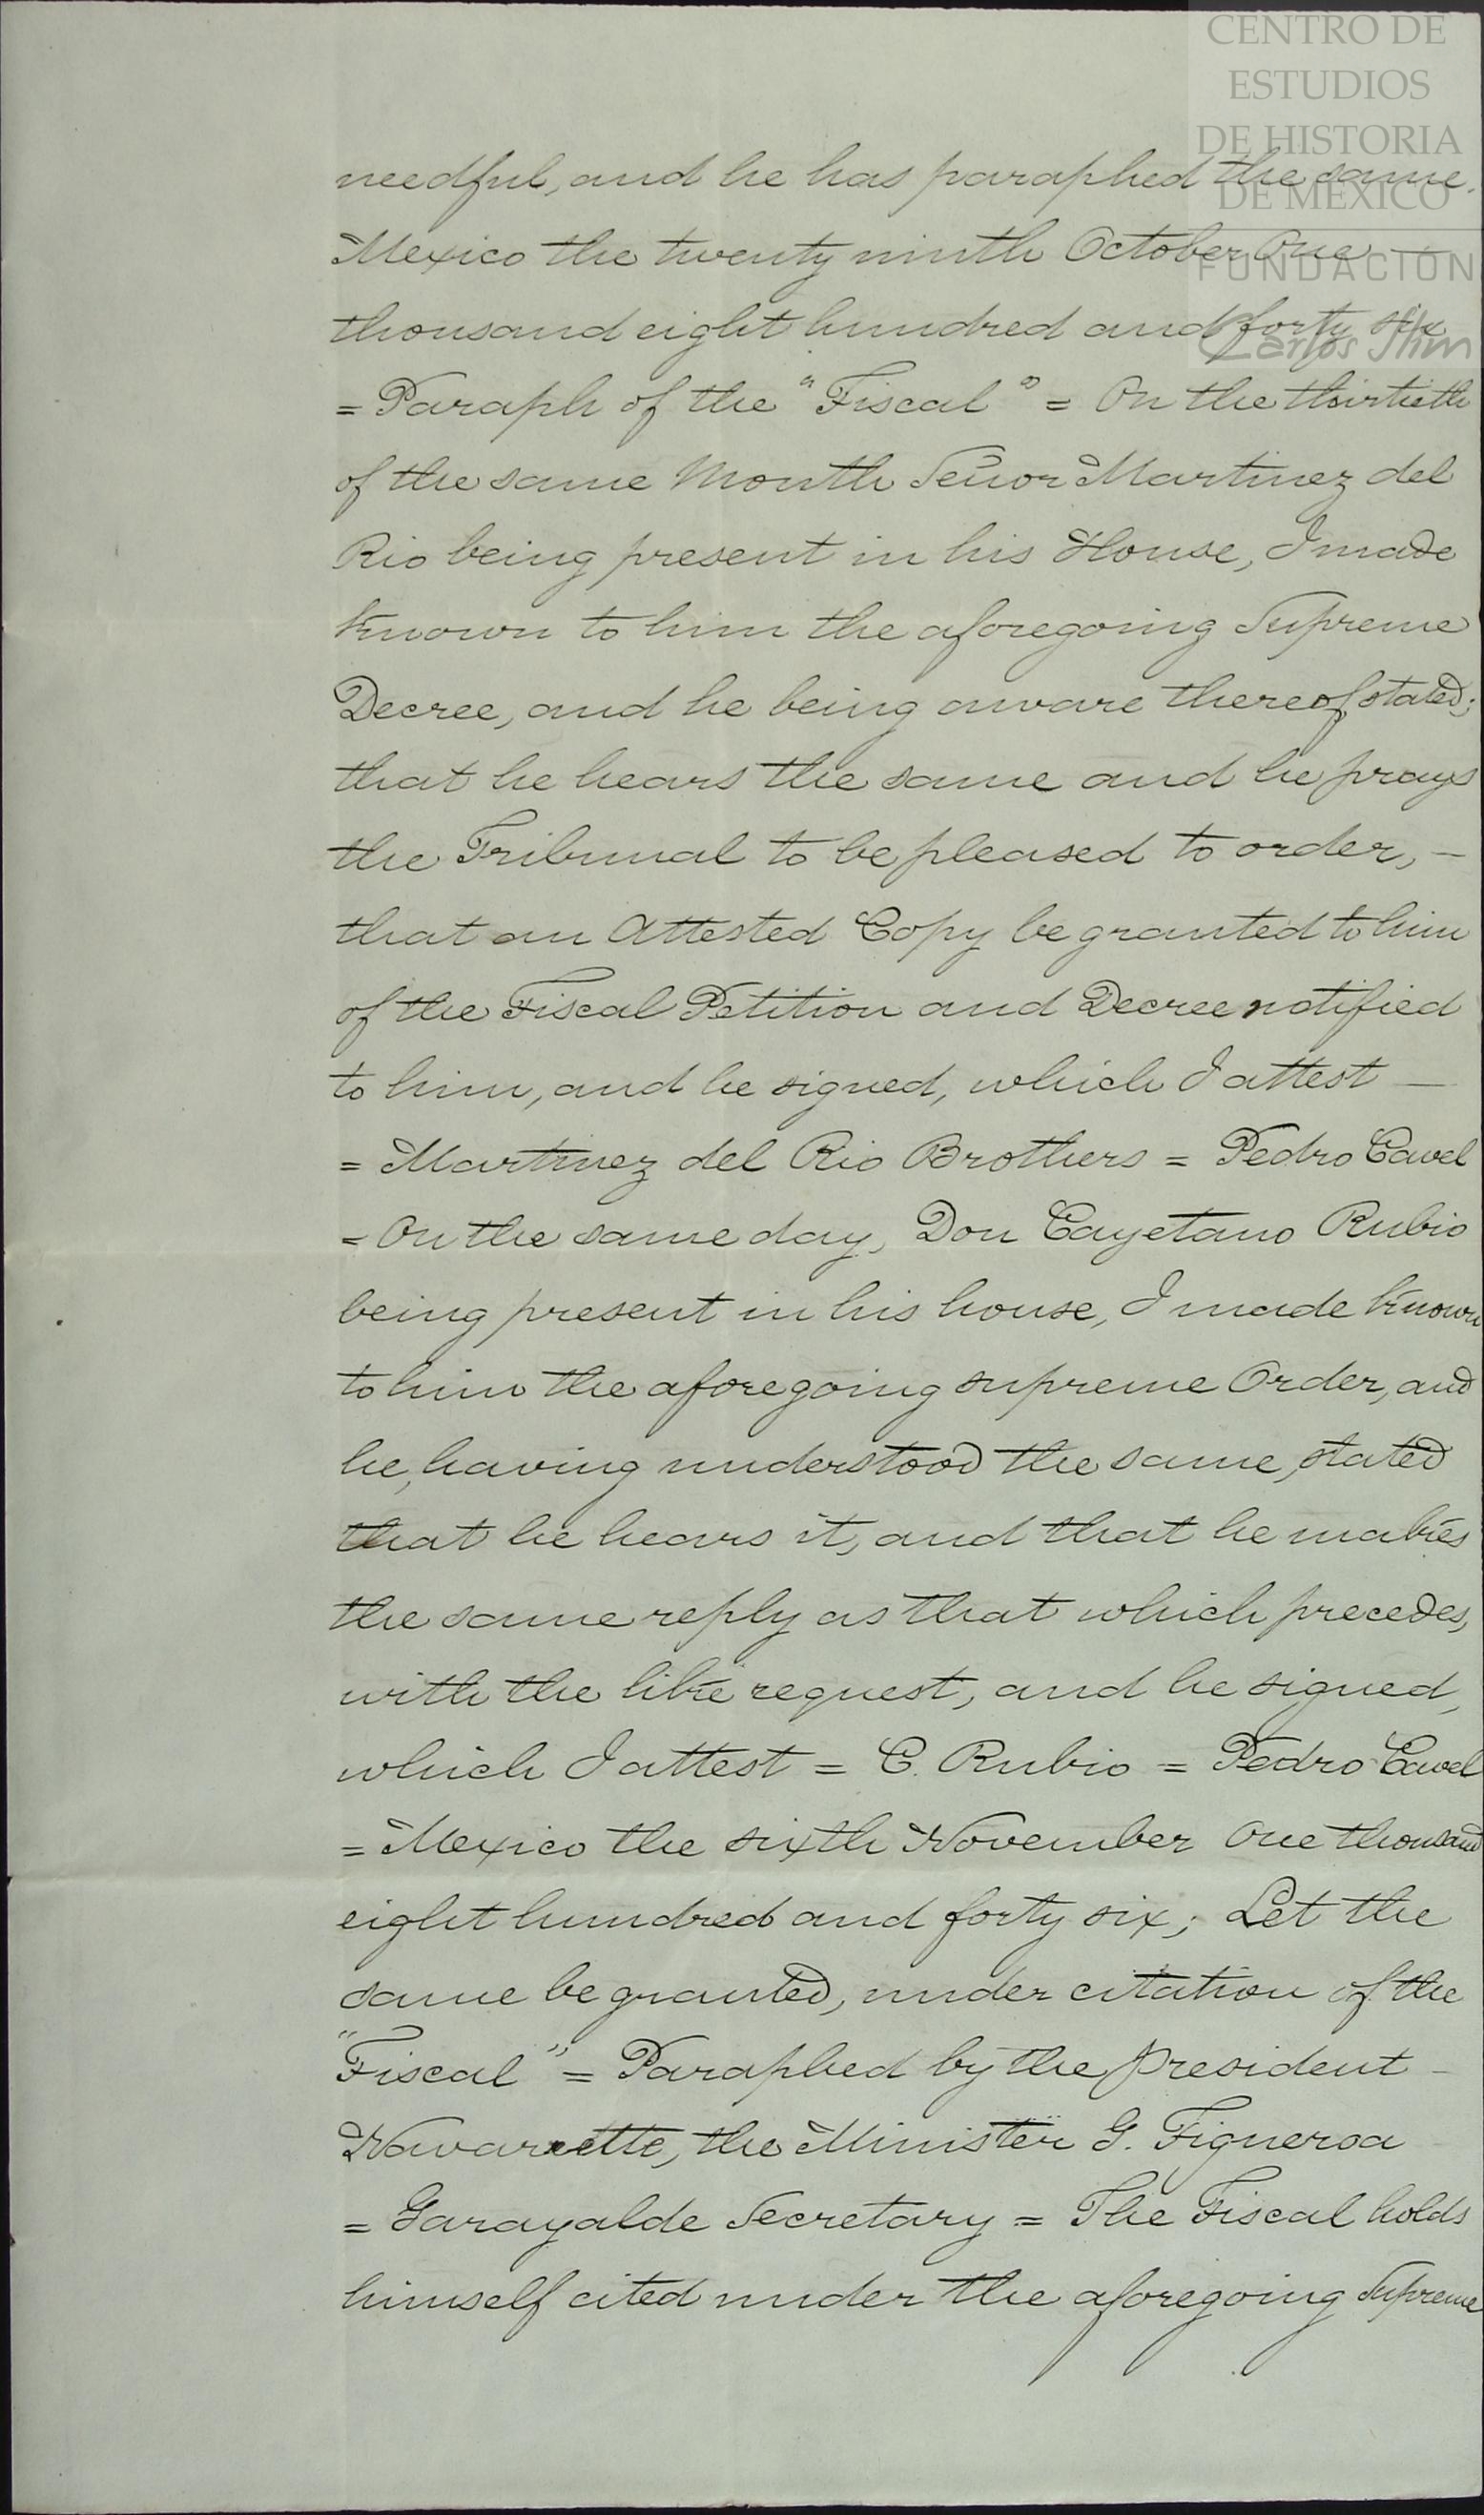 CENTRO DE
ESTUDIOS
DE HISTORIA
DE MEXICO
FUNDACIÓN
Carlos Slim
needful, and he has paraphed the same.
Mexico the twenty ninth October One —
thousand eight hundred and forty six
= Paraph of the "Fiscal" = On the thirtieth
of the same Month Señor Martinez del
Rio being present in his House, I made
known to him the aforegoing Supreme
Decree, and he being aware thereof stated;
that he hears the same and he prays
the Tribunal to be pleased to order, —
that an Attested Copy be granted to him
of the Fiscal Petition and Decree notified
to him, and he signed, which I attest —
= Martinez del Rio Brothers = Pedro Cavel
= On the same day, Don Cayetano Rubio
being present in his house, I made known
to him the aforegoing supreme Order, and
he, having understood the same, stated
that he hears it, and that he makes
the same reply as that which precedes,
with the like request, and he signed,
which I attest = C. Rubio = Pedro Cavel
= Mexico the sixth November One thousand
eight hundred and forty six; Let the
same be granted, under citation of the
"Fiscal" = Paraphed by the President —
Navarrette, the Minister G. Figueroa
= Garayalde Secretary = The Fiscal holds
himself cited under the aforegoing Supreme